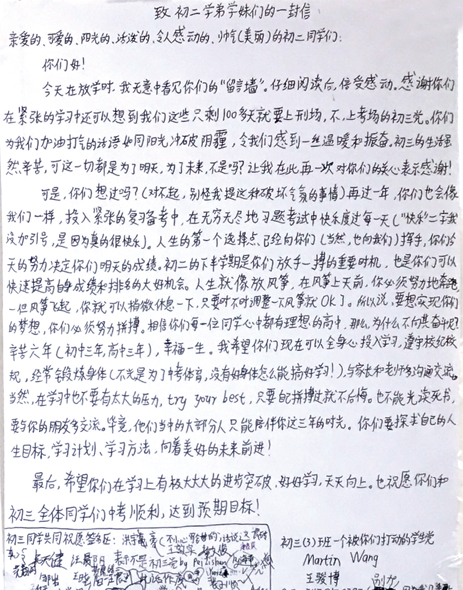 致 初二学弟学妹们的一封信
亲爱的、可爱的、阳光的、活泼的、令人感动的、帅气(美丽)的初二同学们:
你们好!
今天在放学时,我无意中看见你们的“留言墙”。仔细阅读后,倍受感动。感谢你们
在紧张的学习中还可以想到我们这些只剩100多天就要上刑场,不,上考场的初三党。你们
为我们加油打气的话语如同阳光,冲破阴霾,令我们感到一丝温暖和振奋,初三的生活虽
然辛苦,可这一切都是为了明天,为了未来,不是吗?让我在此再一次对你们的关心表示感谢!
可是,你们想过吗?(对不起,别怪我提这种破坏气氛的事情)再过一年,你们也会像
我们一样,投入紧张的复习备考中,在无穷无尽地习题考试中快乐度过每一天(“快乐”二字我
没加引号,是因为真的很快乐)。人生的第一个选择点已经向你们(当然,也向我们)挥手,你们今
天的努力决定你们明天的成绩。初二的下半学期是你们放手一搏的重要时机,也是你们可以
快速提高自身成绩和排名的大好机会。人生就像放风筝,在风筝上天前,你必须努力地奔跑
一但风筝飞起,你就可以稍微休息一下,只要时不时调整一下风筝就OK了。所以说,要想实现你们
的梦想,你们必须努力拼搏。相信你们每一位同学心中都有理想的高中,那么,为什么不向其奋斗呢?
辛苦六年(初中三年,高中三年),幸福一生。我希望你们现在可以全身心投入学习,遵守校纪校
规,经常锻炼身体(不光是为了中考体育,没有好身体怎么能搞好学习!),与家长和老师多沟通交流。
当然,在学习中也不要有太大的压力,try your best,只要能拼搏过就不后悔。也不能光读死书,
要与你的朋友多交流。毕竟,他们当中的大部分人只能陪伴你这三年的时光。你们要探求自己的人
生目标、学习计划、学习方法,向着美好的未来前进!
最后,希望你们在学习上有极大大大的进步突破,好好学习,天天向上。也祝愿你们和
初三全体同学们中考顺利,达到预期目标!
初三同学共同祝愿签名区:
初三(3)班一个被你们打动的学生党
Martin Wang
王骏博